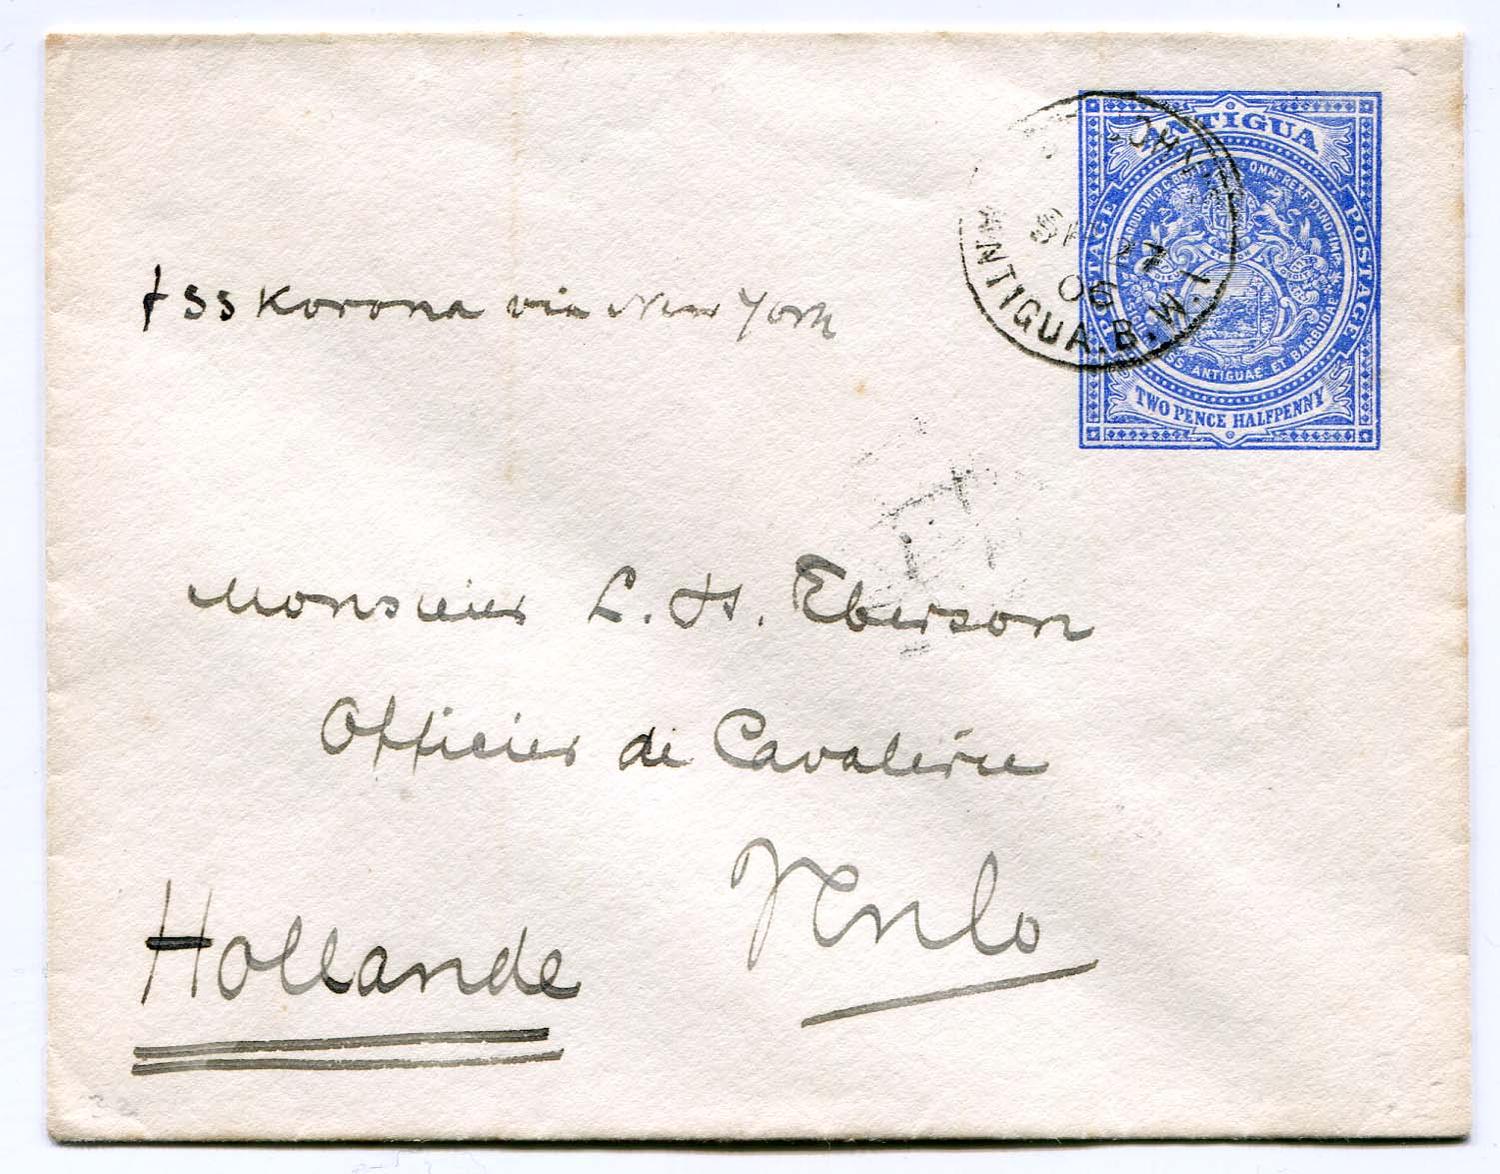 ANTIGUA
POSTAGE POSTAGE
ANTIGUAE ET BARBUDAE
TWO PENCE HALFPENNY
27
06
ANTIGUA.B.W.I
SS Korona via New York
Monsieur L. H. Eberson
Officier de Cavalerie
Venlo
Hollande